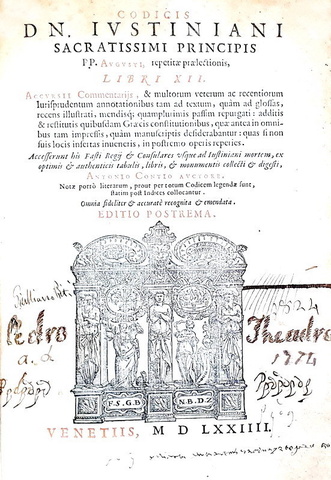 CODICIS
DN. IVSTINIANI
SACRATISSIMI PRINCIPIS
PP. AVGVSTI, repetitæ prælectionis,
LIBRI XII.
ACCVRSII Commentarijs, & multorum veterum ac recentiorum
Iurisprudentum annotationibus tam ad textum, quàm ad glossas,
recens illustrati, mendisq; quamplurimis passim repurgati: additis
& restitutis quibusdam Græcis constitutionibus, quæ antea in omni-
bus tam impressis, quàm manuscriptis desiderabantur: quas si non
suis locis insertas inueneris, in postremo operis reperies.
Accesserunt his Fasti Regij & Consulares vsque ad Iustiniani mortem, ex
optimis & authenticis tabulis, libris, & monumentis collecti & digesti,
ANTONIO CONTIO AVCTORE.
Notæ porrò literarum, prout per totum Codicem legendæ sunt,
statim post Indices collocantur.
Omnia fideliter & accuratè recognita & emendata.
EDITIO POSTREMA.
1824
Pedro
a. d.
Theadro
1774
F.S.G.B N.B.D.Z
VENETIIS, M D LXXIIII.